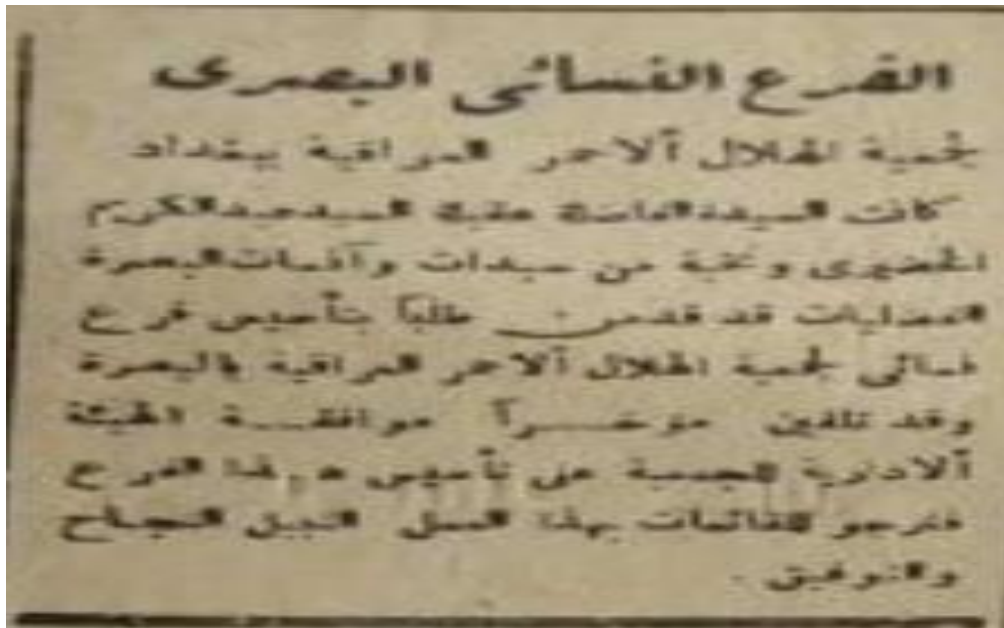 الفرع النسائي البصري
لجمعية الهلال ألاحمر العراقية ببغداد
كانت السيدة الفاضلة عقيلة السيد عبدالكريم
الخضيري ونخبة من سيدات وآنسات البصرة
الفضليات قد قدمن طلباً بتأسيس فرع
نسائي لجمعية الهلال ألاحمر العراقية بالبصرة
وقد تلقين مؤخراً موافقة الهيئة
ألادارية للجمعية على تأسيس هذا الفرع
فنرجو للقائمات بهذا العمل النبيل النجاح
والتوفيق .